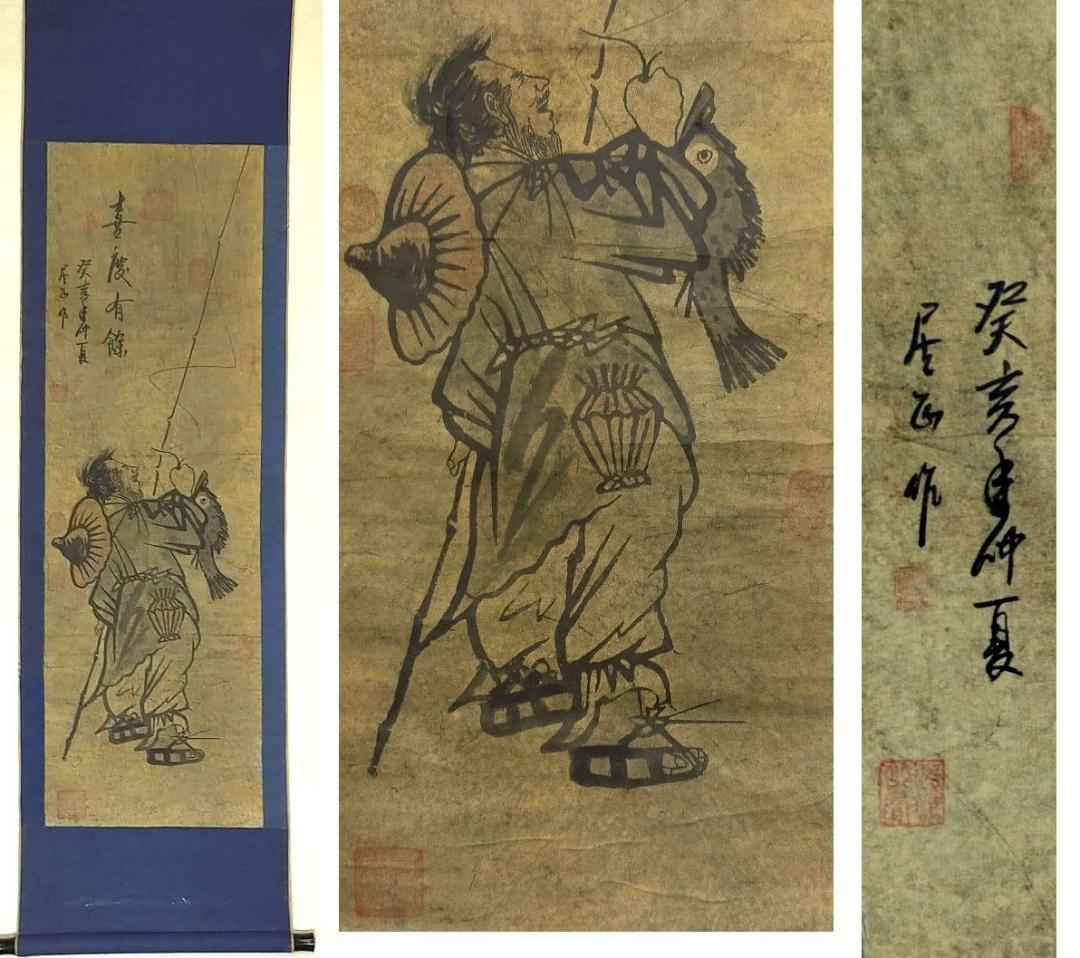 喜慶有餘
癸亥年仲夏
居正作
癸亥年仲夏
居正作